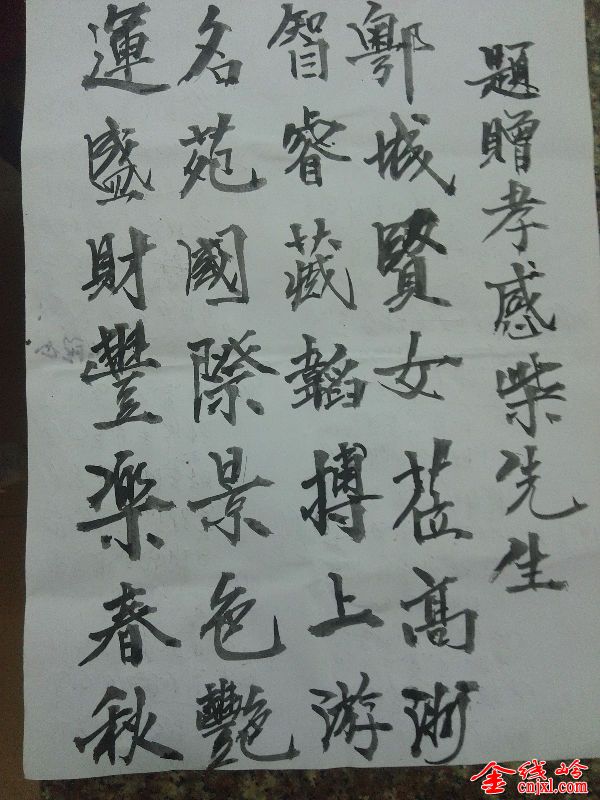 題贈孝感柴先生
鄂城賢女莅高洲
智睿藏韜搏上游
名苑國際景色艷
運盛財豐樂春秋
金线岭
cnjxl.com